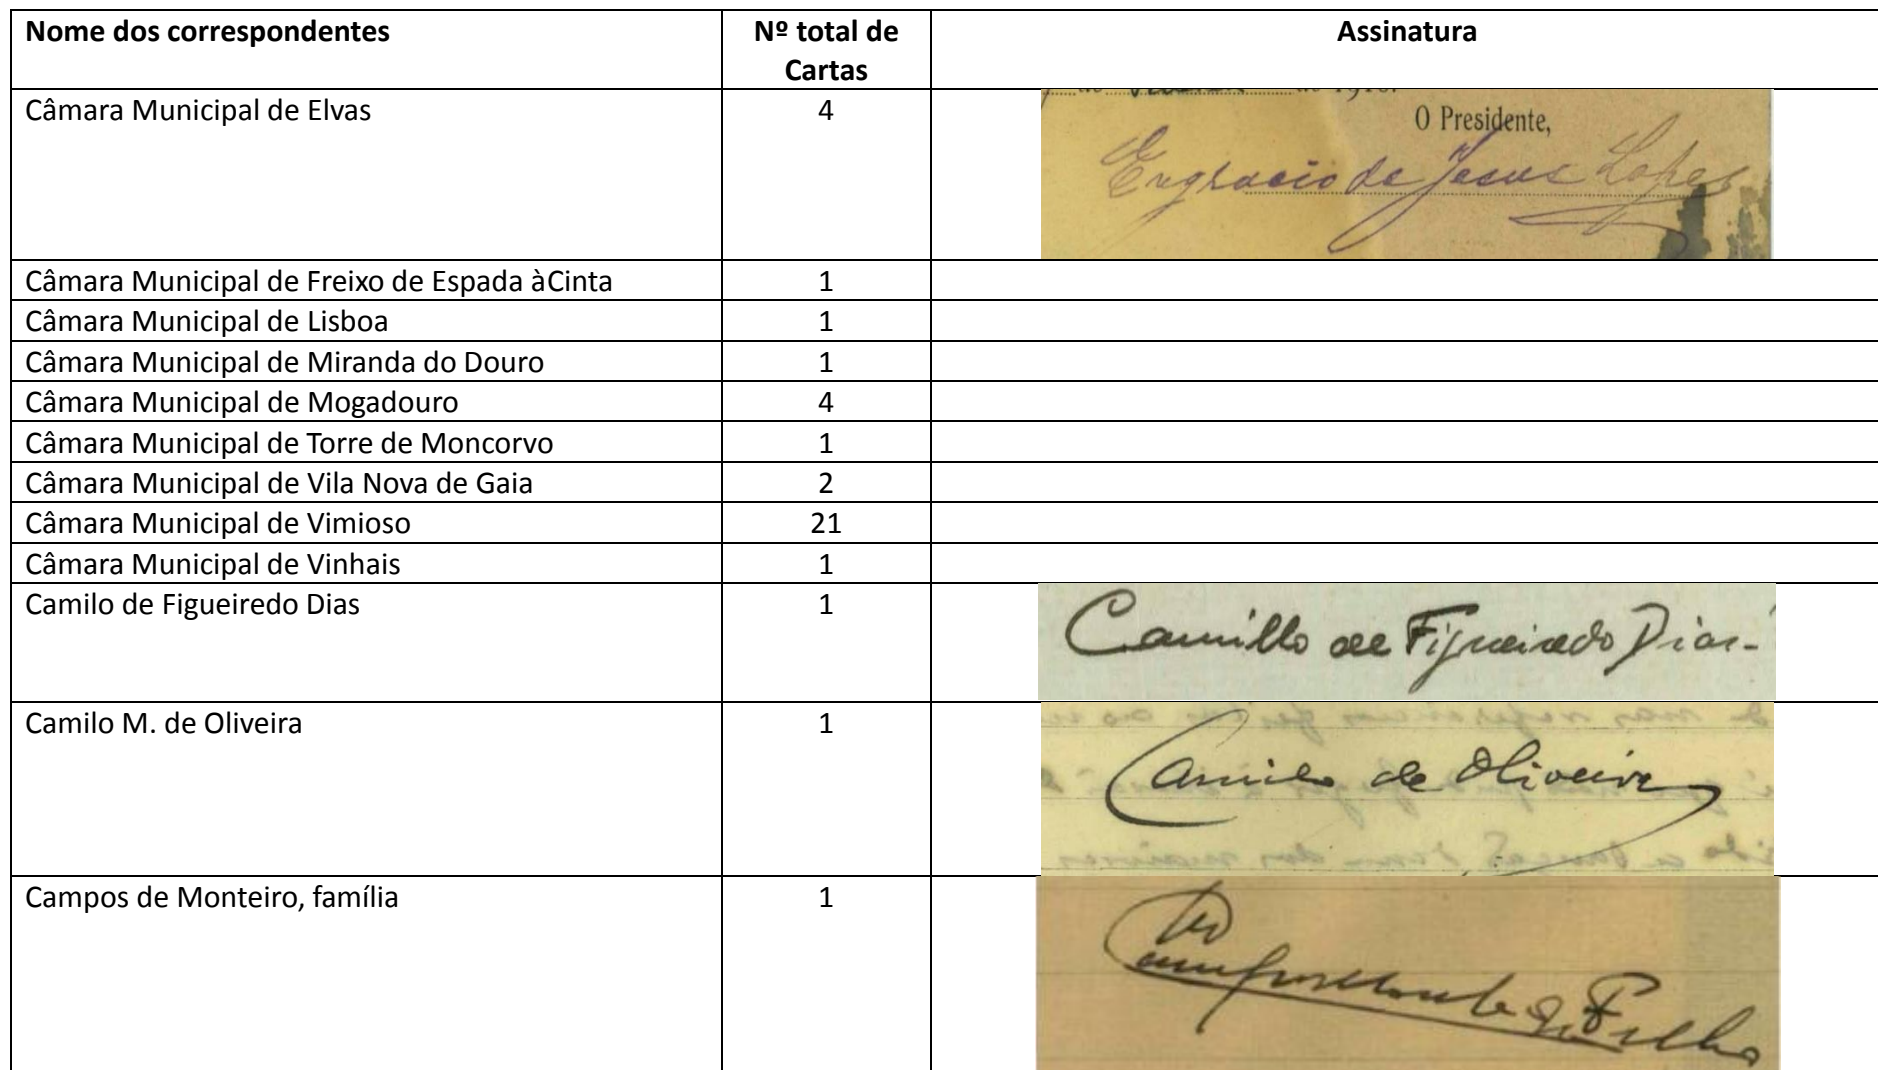 Nome dos correspondentes Nº total de Cartas Assinatura
Câmara Municipal de Elvas 4
de 1918.
O Presidente,
Engracio de Jesus Lopes
Câmara Municipal de Freixo de Espada àCinta 1
Câmara Municipal de Lisboa 1
Câmara Municipal de Miranda do Douro 1
Câmara Municipal de Mogadouro 4
Câmara Municipal de Torre de Moncorvo 1
Câmara Municipal de Vila Nova de Gaia 2
Câmara Municipal de Vimioso 21
Câmara Municipal de Vinhais 1
Camilo de Figueiredo Dias 1
Camillo de Figueiredo Dias
Camilo M. de Oliveira 1
Camilo de Oliveira
Campos de Monteiro, família 1
Campos Monteiro Filho